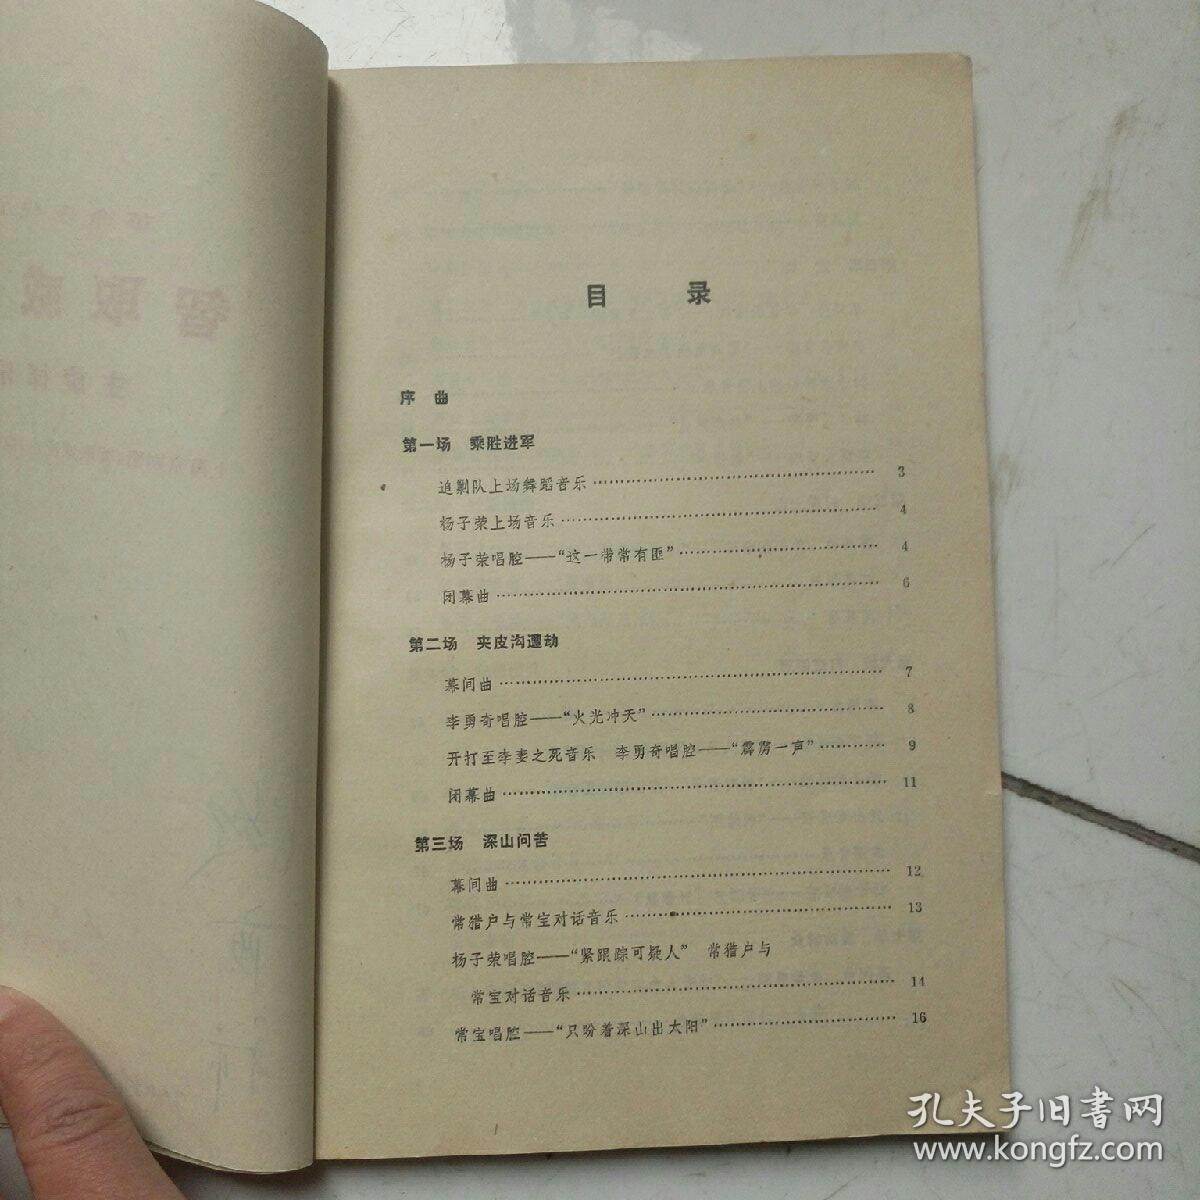 目 录
序 曲
第一场 乘胜进军
追剿队上场舞蹈音乐 3
杨子荣上场音乐 4
杨子荣唱腔——“这一带常有匪” 4
闭幕曲 6
第二场 夹皮沟遭劫
幕间曲 7
李勇奇唱腔——“火光冲天” 8
开打至李妻之死音乐 李勇奇唱腔——“霹雳一声” 9
闭幕曲 11
第三场 深山问苦
幕间曲 12
常猎户与常宝对话音乐 13
杨子荣唱腔——“紧跟踪可疑人” 常猎户与
常宝对话音乐 14
常宝唱腔——“只盼着深山出太阳” 16
孔夫子旧书网
www.kongfz.com